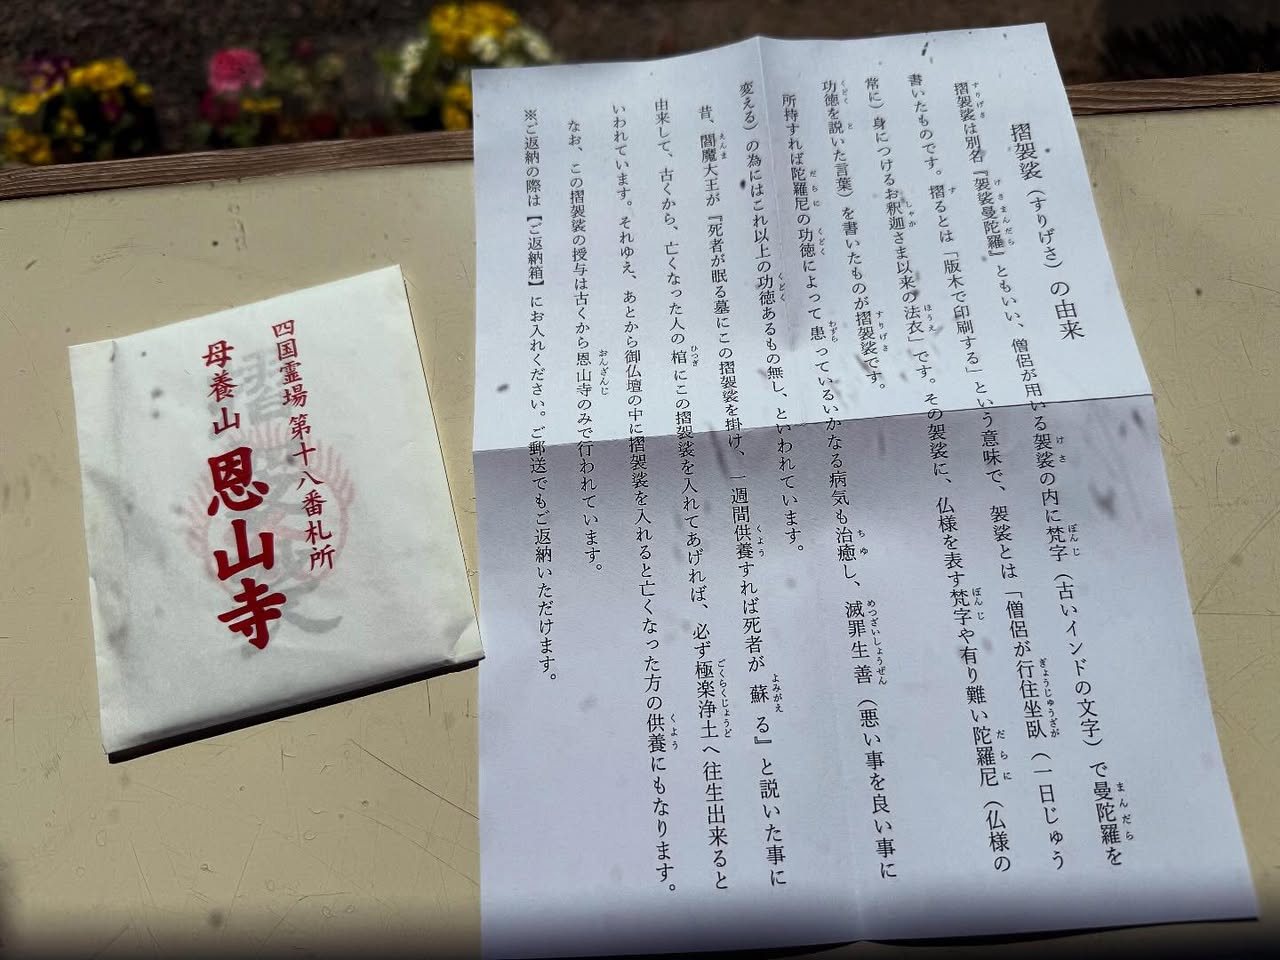 摺袈裟（すりげさ）の由来
摺袈裟は別名『袈裟曼陀羅』ともいい、僧侶が用いる袈裟の内に梵字（古いインドの文字）で曼陀羅を
書いたものです。摺るとは「版木で印刷する」という意味で、袈裟とは「僧侶が行住坐臥（一日じゅう
常に）身につけるお釈迦さま以来の法衣」です。その袈裟に、仏様を表す梵字や有り難い陀羅尼（仏様の
功徳を説いた言葉）を書いたものが摺袈裟です。
所持すれば陀羅尼の功徳によって患っているいかなる病気も治癒し、滅罪生善（悪い事を良い事に
変える）の為にはこれ以上の功徳あるもの無し、といわれています。
昔、閻魔大王が『死者が眠る墓にこの摺袈裟を掛け、一週間供養すれば死者が蘇る』と説いた事に
由来して、古くから、亡くなった人の棺にこの摺袈裟を入れてあげれば、必ず極楽浄土へ往生出来ると
いわれています。それゆえ、あとから御仏壇の中に摺袈裟を入れると亡くなった方の供養にもなります。
なお、この摺袈裟の授与は古くから恩山寺のみで行われています。
※ご返納の際は【ご返納箱】にお入れください。ご郵送でもご返納いただけます。
四国霊場第十八番札所
母養山 恩山寺